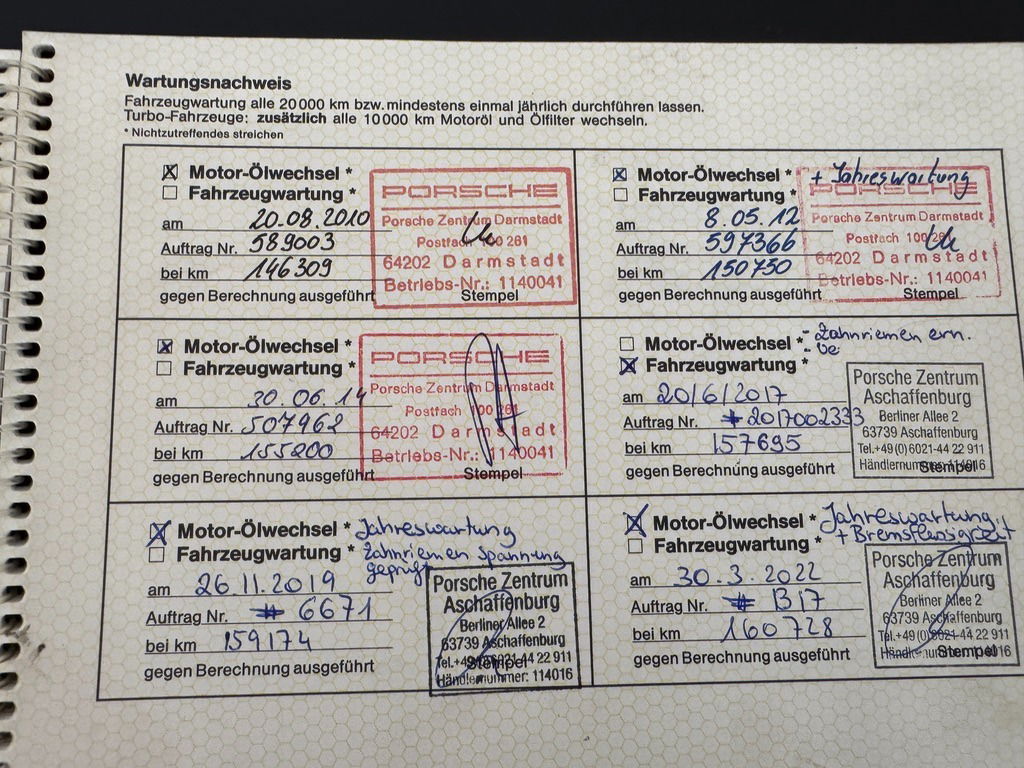 Wartungsnachweis
Fahrzeugwartung alle 20 000 km bzw. mindestens einmal jährlich durchführen lassen.
Turbo-Fahrzeuge: zusätzlich alle 10 000 km Motoröl und Ölfilter wechseln.
* Nichtzutreffendes streichen
Motor-Ölwechsel *
Fahrzeugwartung *
am 20.08.2010
Auftrag Nr. 589003
bei km 146309
gegen Berechnung ausgeführt
Stempel
PORSCHE
Porsche Zentrum Darmstadt
Postfach 100 261
64202 Darmstadt
Betriebs-Nr.: 1140041
Motor-Ölwechsel * + Jahreswartung
Fahrzeugwartung *
am 8.05.12
Auftrag Nr. 597366
bei km 150730
gegen Berechnung ausgeführt
Stempel
PORSCHE
Porsche Zentrum Darmstadt
Postfach 100 261
64202 Darmstadt
Betriebs-Nr.: 1140041
Motor-Ölwechsel *
Fahrzeugwartung *
am 30.06.14
Auftrag Nr. 507962
bei km 155200
gegen Berechnung ausgeführt
Stempel
PORSCHE
Porsche Zentrum Darmstadt
Postfach 100 261
64202 Darmstadt
Betriebs-Nr.: 1140041
Motor-Ölwechsel * - Zahnriemen ern.
Fahrzeugwartung *
am 20/6/2017
Auftrag Nr. # 2017002333
bei km 157695
gegen Berechnung ausgeführt
Stempel
Porsche Zentrum
Aschaffenburg
Berliner Allee 2
63739 Aschaffenburg
Tel.+49(0)6021-44 22 911
Händlernummer: 114016
Motor-Ölwechsel * Jahreswartung
Fahrzeugwartung * Zahnriemen Spannung
geprüft
am 26.11.2019
Auftrag Nr. # 6671
bei km 159174
gegen Berechnung ausgeführt
Stempel
Porsche Zentrum
Aschaffenburg
Berliner Allee 2
63739 Aschaffenburg
Tel.+49(0)6021-44 22 911
Händlernummer: 114016
Motor-Ölwechsel * Jahreswartung
Fahrzeugwartung * + Bremsflüssigkeit
am 30.3.2022
Auftrag Nr. # 1317
bei km 160728
gegen Berechnung ausgeführt
Stempel
Porsche Zentrum
Aschaffenburg
Berliner Allee 2
63739 Aschaffenburg
Tel.+49(0)6021-44 22 911
Händlernummer: 114016